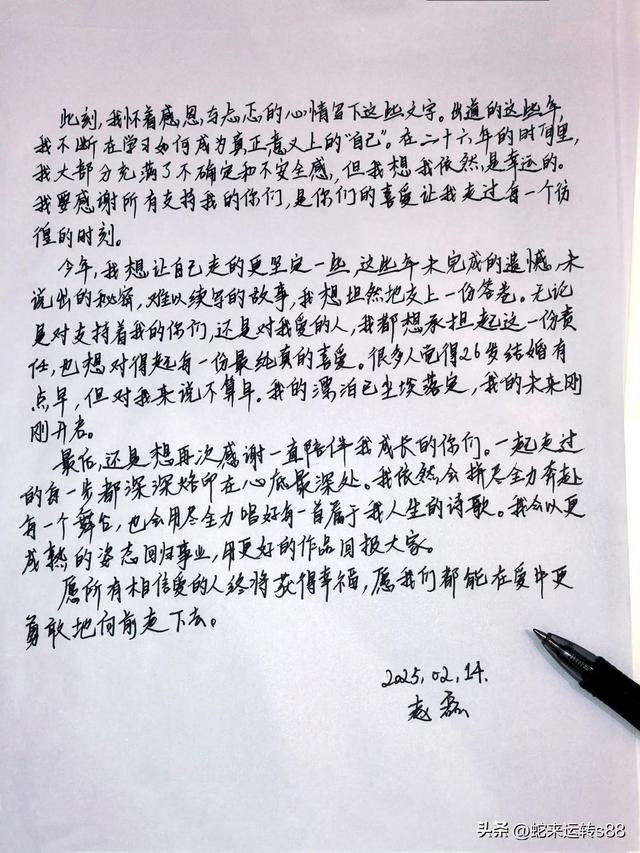 此刻,我怀着感恩与忐忑的心情留下这些文字。出道的这些年,
我不断在学习如何成为真正意义上的"自己"。在二十六年的时间里,
我大部分充满了不确定和不安全感,但我想我依然,是幸运的。
我要感谢所有支持我的你们,是你们的喜爱让我走过每一个彷
徨的时刻。
今年,我想让自己走的更坚定一些,这些年未完成的遗憾,未
说出的秘密,难以续写的故事,我想坦然地交上一份答卷。无论
是对支持着我的你们,还是对我爱的人,我都想承担起这一份责
任,也想对得起每一份最纯真的喜爱。很多人觉得26岁结婚有
点早,但对我来说不算早。我的漂泊已尘埃落定,我的未来刚
刚开启。
最后,还是想再次感谢一直陪伴我成长的你们。一起走过
的每一步都深深烙印在心底最深处。我依然,会拼尽全力奔赴
每一个舞台,也会用尽全力唱好每一首属于我人生的诗歌。我会以更
成熟的姿态回归事业,用更好的作品回报大家。
愿所有相信爱的人终将获得幸福,愿我们都能在爱中更
勇敢地向前走下去。
2025.02.14.
赵磊
头条 @蛇来运转s88